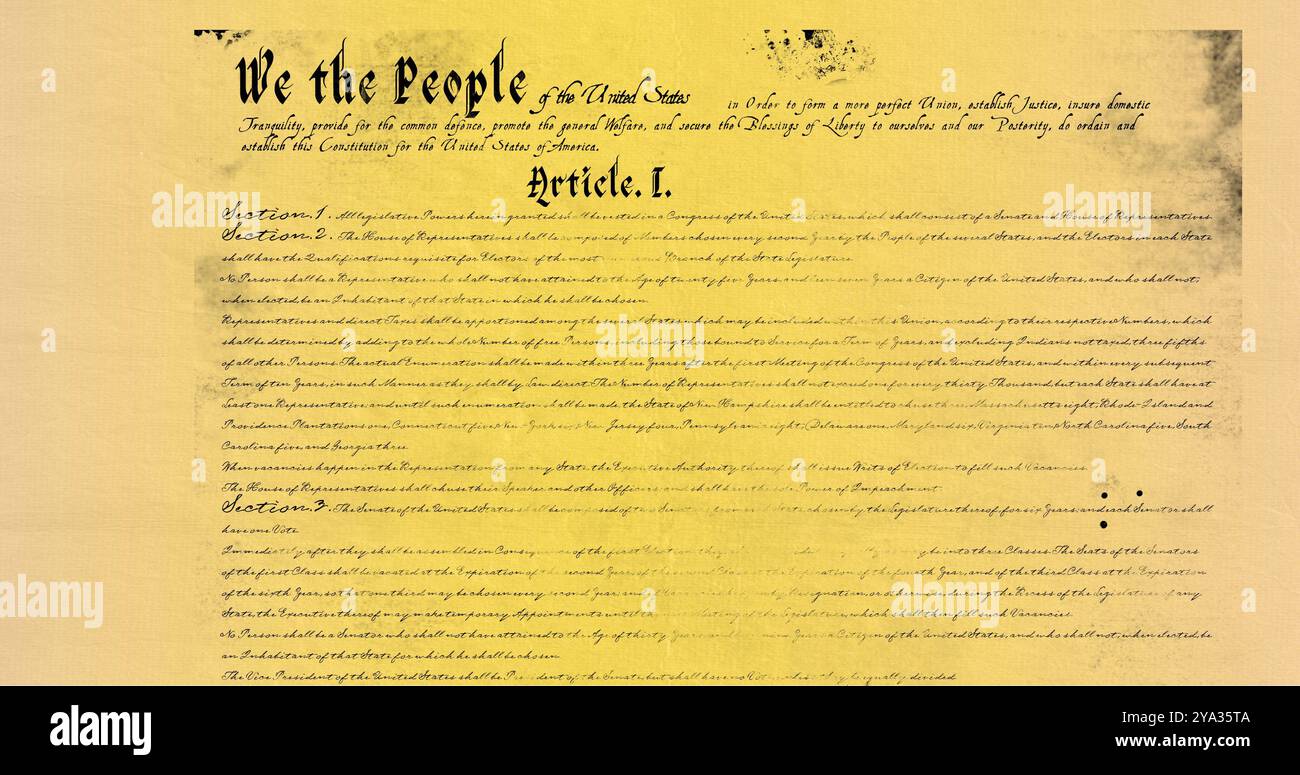 We the People of the United States in Order to form a more perfect Union, establish Justice, insure domestic
Tranquility, provide for the common defence, promote the general Welfare, and secure the Blessings of Liberty to ourselves and our Posterity, do ordain and
establish this Constitution for the United States of America.
Article. I.
Section. 1. All legislative Powers herein granted shall be vested in a Congress of the United States, which shall consist of a Senate and House of Representatives.
Section. 2. The House of Representatives shall be composed of Members chosen every second Year by the People of the several States, and the Electors in each State
shall have the Qualifications requisite for Electors of the most Branch of the State Legislature.
No Person shall be a Representative who shall not have attained to the Age of twenty five Years, and been seven Years a Citizen of the United States, and who shall not,
when elected, be an Inhabitant of that State in which he shall be chosen.
Representatives and direct Taxes shall be apportioned among the several States which may be included within this Union, according to their respective Numbers, which
shall be determined by adding to the whole Number of free Persons, including those bound to Service for a Term of Years, and excluding Indians not taxed, three fifths
of all other Persons. The actual Enumeration shall be made within three Years after the first Meeting of the Congress of the United States, and within every subsequent
Term of ten Years, in such Manner as they shall by Law direct. The Number of Representatives shall not exceed one for every thirty Thousand, but each State shall have at
Least one Representative; and until such enumeration shall be made, the State of New Hampshire shall be entitled to chuse three, Massachusetts eight, Rhode-Island and
Providence Plantations one, Connecticut five, New-York six, New Jersey four, Pennsylvania eight, Delaware one, Maryland six, Virginia ten, North Carolina five, South
Carolina five, and Georgia three.
When vacancies happen in the Representation from any State, the Executive Authority thereof shall issue Writs of Election to fill such Vacancies.
The House of Representatives shall chuse their Speaker and other Officers; and shall have the sole Power of Impeachment.
Section. 3. The Senate of the United States shall be composed of two Senators from each State, chosen by the Legislature thereof, for six Years; and each Senator shall
have one Vote.
Immediately after they shall be assembled in Consequence of the first Election, they be into three Classes. The Seats of the Senators
of the first Class shall be vacated at the Expiration of the second Year, of the second Class at the Expiration of the fourth Year, and of the third Class at the Expiration
of the sixth Year, so that one third may be chosen every second Year; and if or otherwise, during the Recess of the Legislature of any
State, the Executive thereof may make temporary Appointments until the of the Legislature, which shall then fill such Vacancies.
No Person shall be a Senator who shall not have attained to the Age of thirty Years, and Years a Citizen of the United States, and who shall not, when elected, be
an Inhabitant of that State for which he shall be chosen.
The Vice President of the United States shall be President of the Senate, but shall have no Vote, unless they be equally divided.
alamy
Image ID: 2YA35TA
www.alamy.com